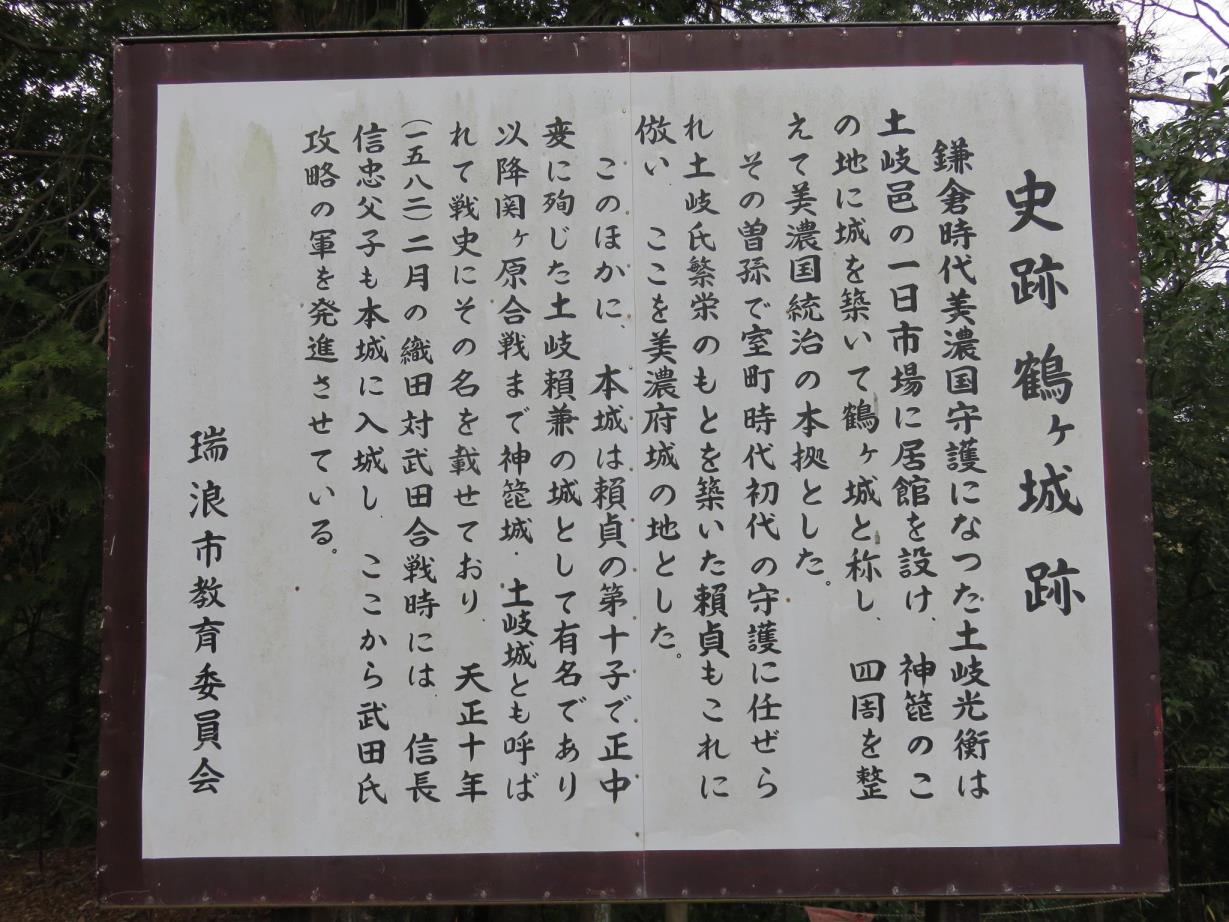 史跡 鶴ヶ城跡
鎌倉時代美濃国守護になつた土岐光衡は
土岐邑の一日市場に居館を設け、神箆のこ
の地に城を築いて鶴ヶ城と称し、四周を整
えて美濃国統治の本拠とした。
その曽孫で室町時代初代の守護に任ぜら
れ土岐氏繁栄のもとを築いた頼貞もこれに
倣い ここを美濃府城の地とした。
このほかに、本城は頼貞の第十子で正中
変に殉じた土岐頼兼の城として有名であり
以降関ヶ原合戦まで神箆城・土岐城とも呼ば
れて戦史にその名を載せており、天正十年
(一五八二)二月の織田対武田合戦時には 信長
信忠父子も本城に入城し、ここから武田氏
攻略の軍を発進させている。
瑞浪市教育委員会